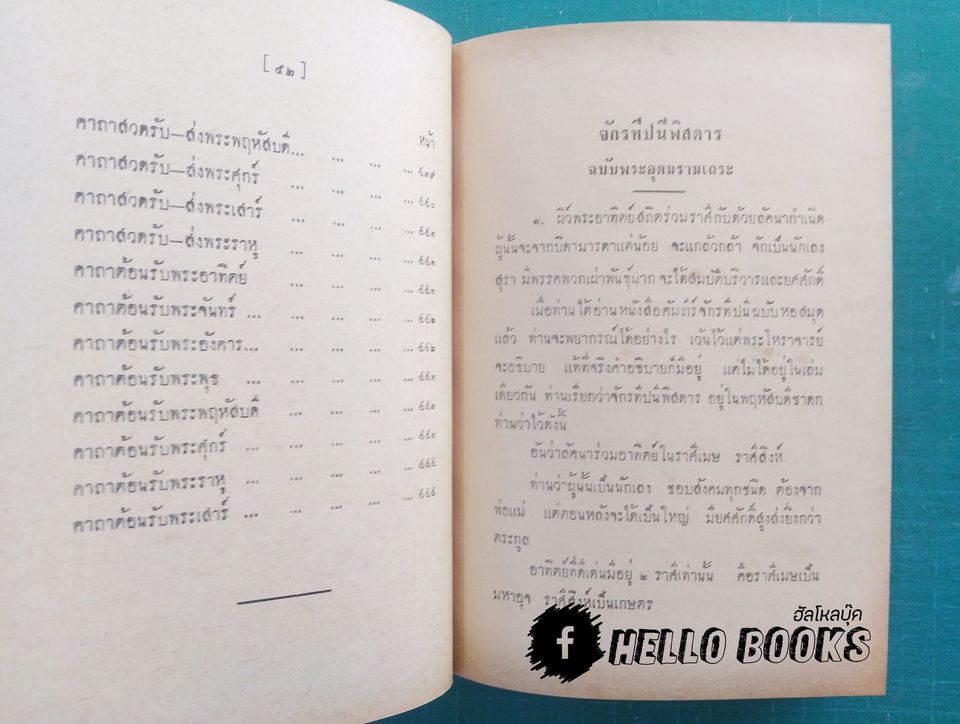 [ ๕๒ ]
หน้า
คาถาสวดรับ—ส่งพระพฤหัสบดี... ... ...
คาถาสวดรับ—ส่งพระศุกร์ ... ... ...
คาถาสวดรับ—ส่งพระเสาร์ ... ... ...
คาถาสวดรับ—ส่งพระราหู ... ... ...
คาถาต้อนรับพระอาทิตย์ ... ... ...
คาถาต้อนรับพระจันทร์ ... ... ... ...
คาถาต้อนรับพระอังคาร... ... ... ...
คาถาต้อนรับพระพุธ ... ... ... ...
คาถาต้อนรับพระพฤหัสบดี ... ... ...
คาถาต้อนรับพระศุกร์ ... ... ... ...
คาถาต้อนรับพระราหู ... ... ... ...
คาถาต้อนรับพระเสาร์ ... ... ... ...
จักรทีปนีพิสดาร
ฉบับพระอุดมรามเถระ
๑. ผิว์พระอาทิตย์สถิตร่วมราศีกับด้วยลัคนากำเนิด
ผู้นั้นจะจากบิดามารดาแต่น้อย จะแกล้วกล้า จักเป็นนักเลง
สุรา มีพรรคพวกเผ่าพันธุ์มาก จะได้สมบัติบริวารและยศศักดิ์
เมื่อท่านได้อ่านหนังสือคัมภีร์จักรทีปนีฉบับหอสมุด
แล้ว ท่านจะพยากรณ์ได้อย่างไร เว้นไว้แต่พระโหราจารย์
จะอธิบาย แท้ที่จริงคำอธิบายก็มีอยู่ แต่ไม่ได้อยู่ในเล่ม
เดียวกัน ท่านเรียกว่าจักรทีปนีพิสดาร อยู่ในพฤหัสบดีชาดก
ท่านว่าไว้ดังนี้
อันว่าลัคนาร่วมอาทิตย์ในราศีเมษ ราศีสิงห์
ท่านว่าผู้นั้นเป็นนักเลง ชอบสังคมทุกชนิด ต้องจาก
พ่อแม่ แต่ตอนหลังจะได้เป็นใหญ่ มียศศักดิ์สูงส่งยิ่งกว่า
ตระกูล
อาทิตย์ที่ดีเด่นมีอยู่ ๒ ราศีเท่านั้น คือราศีเมษเป็น
มหาอุจ ราศีสิงห์เป็นเกษตร
ฮัลโหลบุ๊ค
f HELLO BOOKS